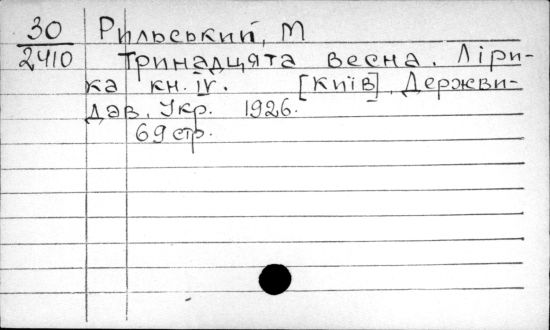 30 Рильський, М
2410 Тринадцята весна. Ліри-
ка кн. IV. [Київ], Держви-
дав. Укр. 1926.
69 стр.